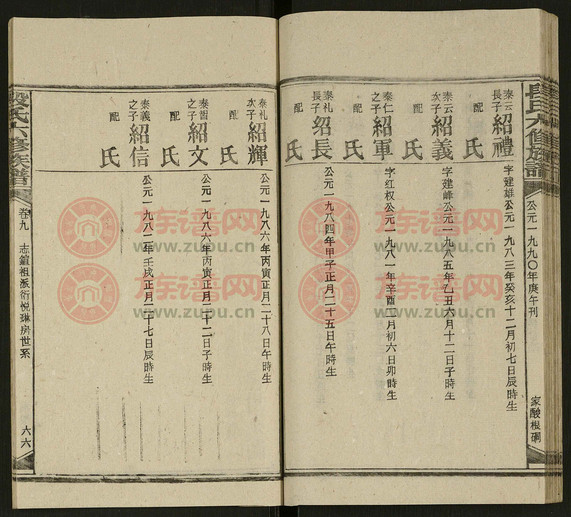 公元一九九〇年庚午刊
泰云長子
紹禮
字建雄公元一九八三年癸亥十二月初七日辰時生
配
氏
泰云次子
紹義
字建峰公元一九八五年乙丑六月十二日子時生
配
氏
泰仁之子
紹軍
字红权公元一九八一年辛酉
月初六日卯時生
配
氏
泰礼長子
紹長
公元一九八四年甲子正月二十五日午時生
配
氏
泰札次子
紹輝
公元一九八六年丙寅正月二十八日午時生
配
氏
泰智之子
紹文
公元一九八六年丙寅正月二十二日子時生
配
氏
泰義之子
紹信
公元一九八二年壬戌正月二十七日辰時生
配
氏
段氏六修族譜
卷九
志鎧祖派衍悦琳房世系
六六
族谱网
www.zupu.cn
族谱网
www.zupu.cn
族谱网
www.zupu.cn
族谱网
www.zupu.cn